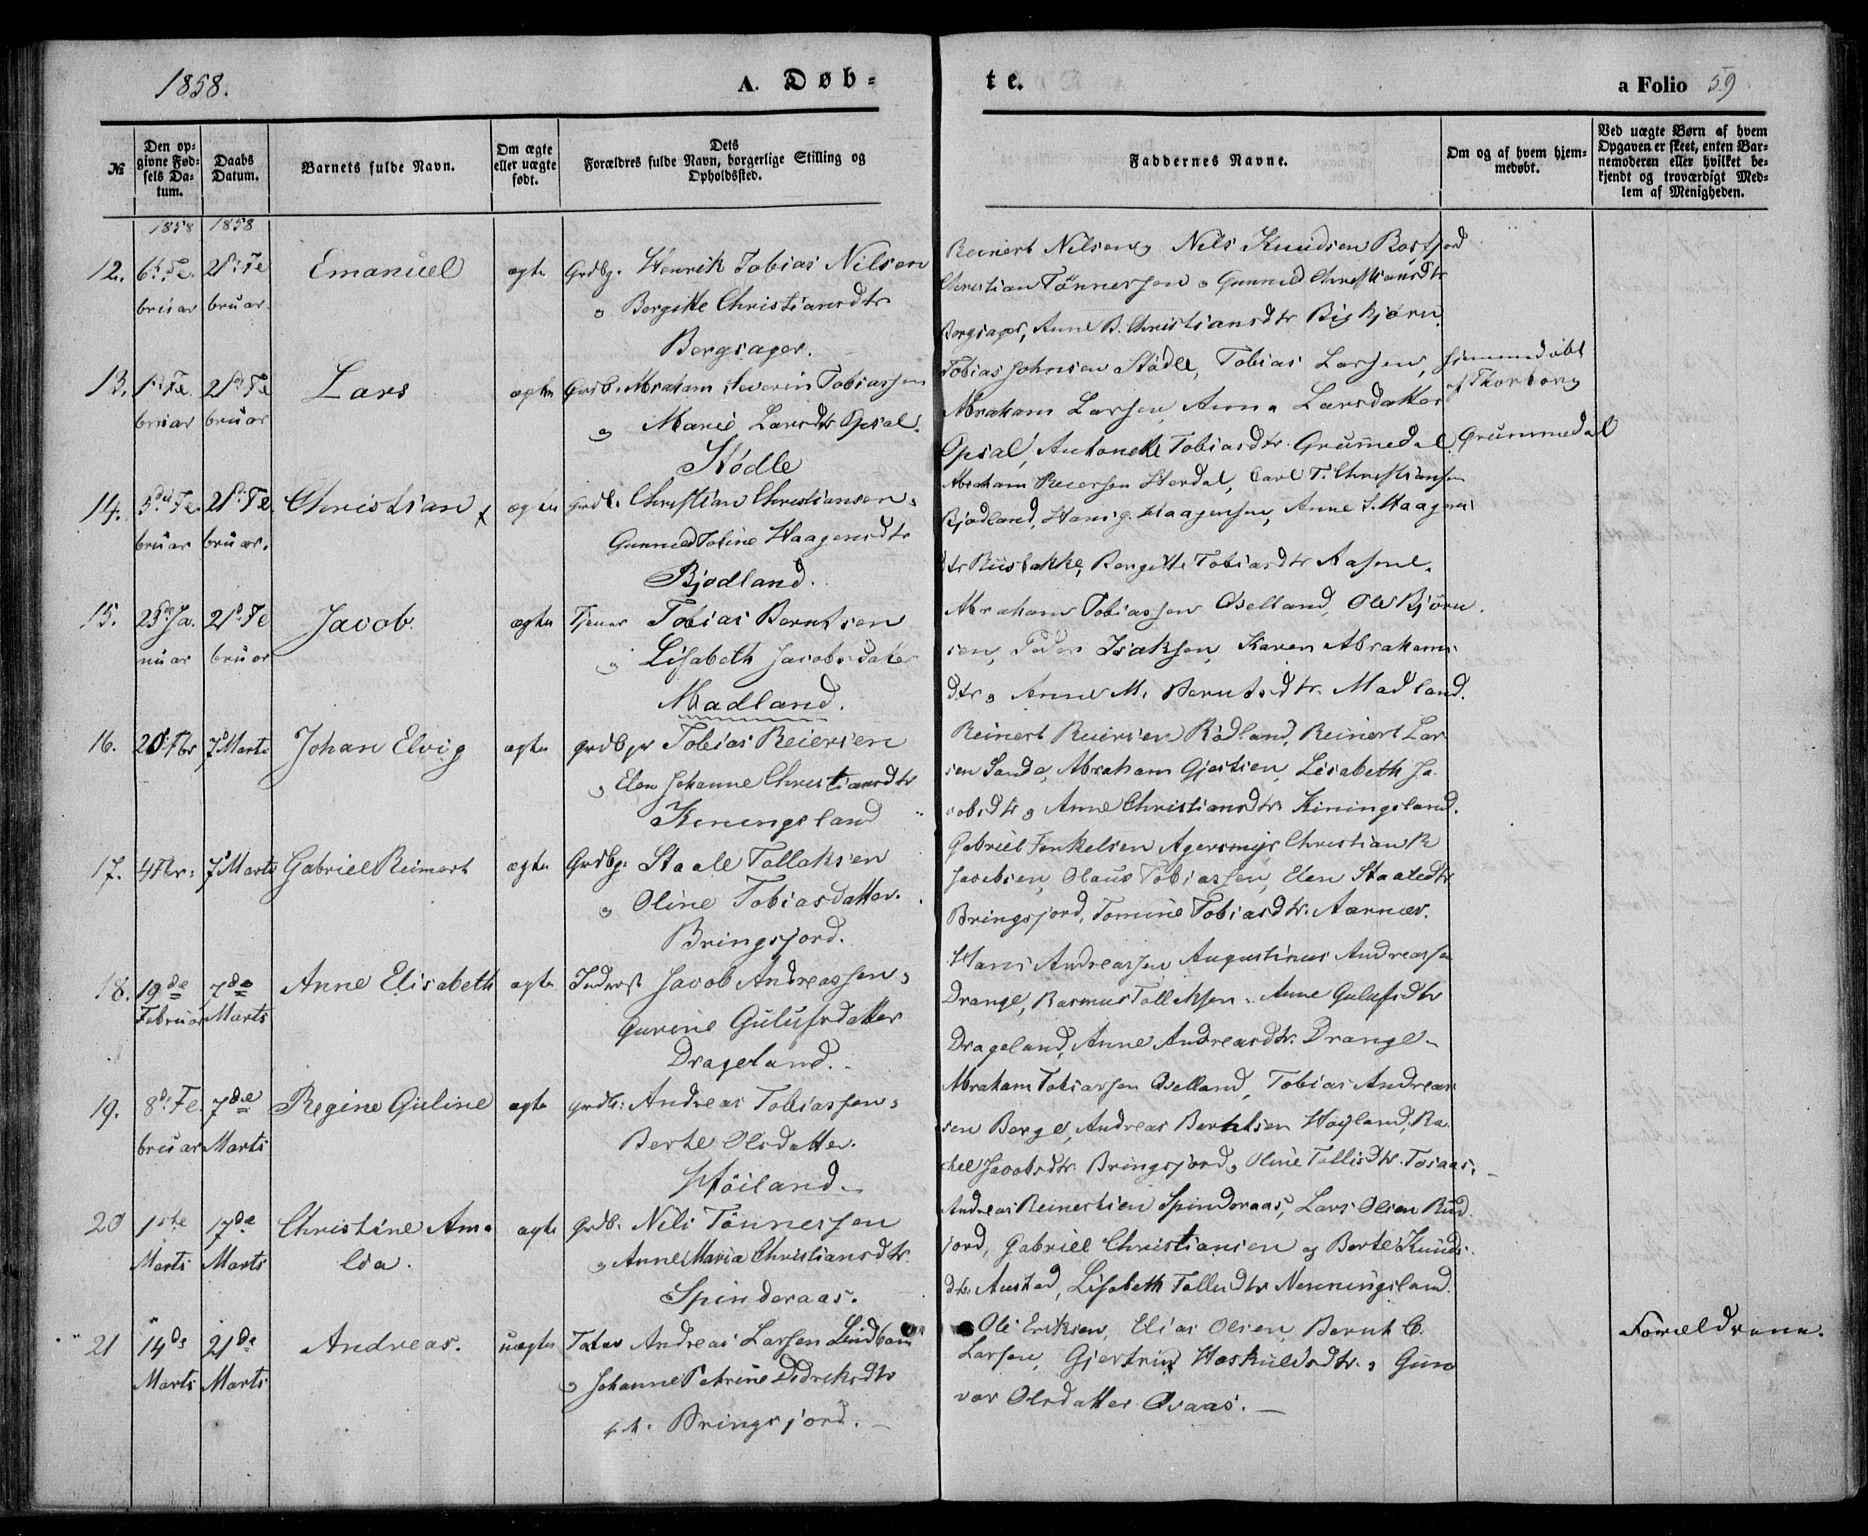 1858.
A. Døb-
te.
a Folio 59
№
Den op-
givne Fød-
sels Da-
tum.
Daabs
Datum.
Barnets fulde Navn.
Om ægte
eller uægte
født.
Dets
Forældres fulde Navn, borgerlige Stilling og
Opholdssted.
Faddernes Navne.
Om og af hvem hjem-
medøbt.
Ved uægte Børn af hvem
Opgaven er skeet, enten Bar-
nemoderen eller hvilket be-
kjendt og troværdigt Med-
lem af Menigheden.
1858 1858
12. 6te Fe 21de Fe Emanuel ægte Grdbg. Henrik Tobias Nilsen
bruar bruar. og Bergitte Christiansdtr
Bergsager.
Reinert Nilsen og Nils Knudsen Rosfjord
Christian Tønnessen og Gunnild Christiansdtr
Bergsager, Anne B. Christiansdtr Bigbjørn.
13. 1ste Fe. 21de Fe Lars ægte Grdb. Abraham Severin Tobiassen
bruar bruar og Marie Larsdtr Opsal.
Stødle
Tobias Johnsen Stødle, Tobias Larsen, hjemmedøbt
Abraham Larsen, Anna Larsdatter af Thorborg
Opsal, Antonette Tobiasdtr. Grummedal Grummedal
14. 5de Fe. 21de Fe. Christian ægte Grdb. Christian Christiansen og
bruar bruar. Gunned Toline Haagensdtr
Bjodland.
Abraham Reiersen Herdal, Carl T. Christiansen
Bjodland, Hans G. Haagensen, Anne S. Haagens
dtr Riisbakke, Bergitte Tobiasdtr Aasene.
15. 25de Ja. 21de Fe Jacob. ægte Tjener Tobias Berntsen
nuar bruar og Lisabeth Jacobsdatter
Madland.
Abraham Tobiassen Qvelland, Ole Bjørn
sen, Peder Isaksen, Karen Abrahams
dtr og Anne M. Berntsdtr. Madland.
16. 20 Fbr 7de Marts Johan Elvig ægte Grdbgr Tobias Reiersen
og Elen Johanne Christiansdtr
Keningsland
Reinert Reiersen Rødland, Reinert Lar
sen Sande, Abraham Gjertsen, Lisabeth Ja
cobsdtr og Anne Christiansdtr Kiningsland.
17. 4 Fbr. 7de Marts Gabriel Reinert ægte Grdbg. Staale Tollaksen
og Oline Tobiasdatter.
Bringsjord.
Gabriel Terkelsen Agersmyr Christian R
Jacobsen, Olaus Tobiassen, Elen Staalesdtr
Bringsjord, Tomine Tobiasdtr. Aarnæs.
18. 19de 7de Anne Elisabeth ægte Inderst Jacob Andreassen og
Februar Marts Gurine Gulufsdatter
Drageland.
Hans Andreassen, Augustinus Andreassen
Drange, Rasmus Tollaksen, Anne Gulufsdtr
Drageland, Anne Andreasdtr. Drange
19. 8de Fe. 7de Regine Guline ægte Grdb: Andreas Tobiassen og
bruar Marts Berte Olsdatter.
Høiland.
Abraham Tobiassen Qvelland, Tobias Andreas
sen Berge, Andreas Berntsen Høyland, Ra
chel Jacobsdtr. Bringsjord og Oline Tollisdtr. Tosaas.
20 1ste 17de Christine Ama ægte Grdb. Nils Tønnessen
Marts Marts lia. og Anne Maria Christiansdtr
Spinderaas.
Andreas Reinertsen Spinderaas, Lars Olsen Rud
jord, Gabriel Christiansen og Berte Knuds
dtr. Austad, Lisabeth Tollisdtr Nenningsland.
21 14de 21de Andreas. uægte Tater Andreas Larsen Lindbom
Marts Marts og Johanne Petrine Didriksdtr
Bringsjord.
Ole Eriksen, Elias Olsen, Bernt C.
Larsen, Gjertrud Haskuldsdtr. og Gun
vor Olsdatter Qvaas.
Forældrene.